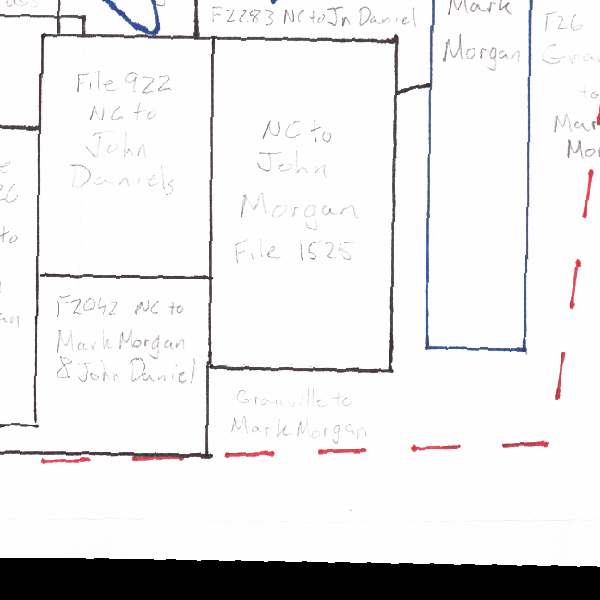 F2283 NC to Jn Daniel
Mark
Morgan
F26
to
File 922
NC to
John
Daniels
NC to
John
Morgan
File 1525
to
F2042 NC to
Mark Morgan
& John Daniel
Granville to
Mark Morgan